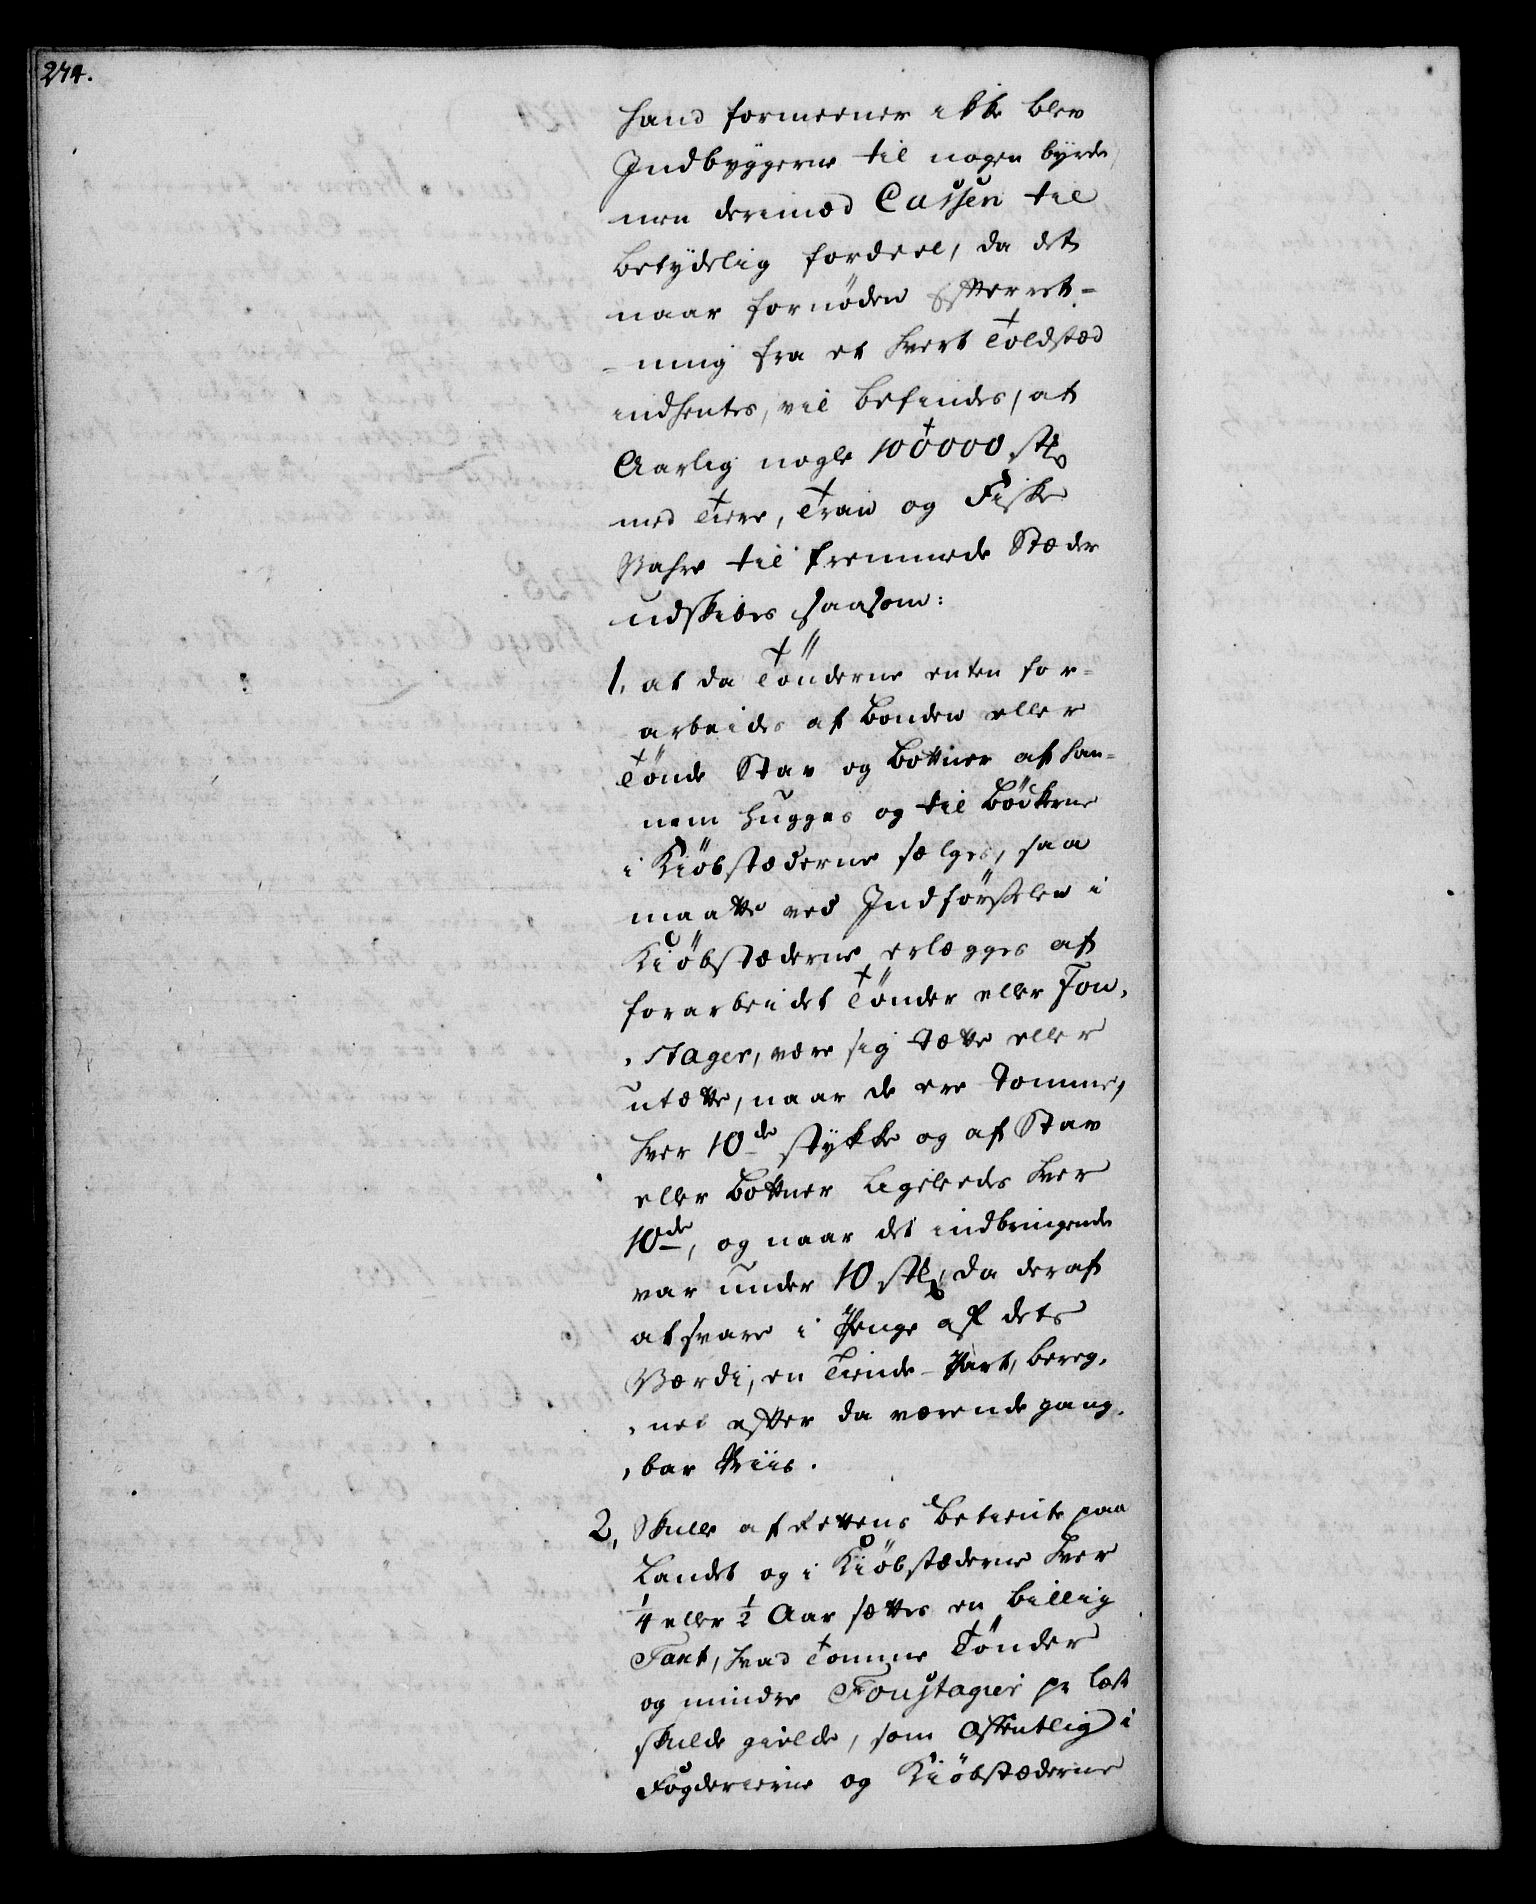 274.
hand formeener ikke blev
Indbyggerne til nogen byrde,
men derimod Cassen til
betydelig fordeel, da det
naar fornøden Efterret-
-ning fra et hvert Toldsted
indhentes, vil befindes, at
Aarlig nogle 100000 stk
med Tiere, Tran og Fiske
Vahre til fremmede Stæder
udskibes saasom:
1, at da Tönderne enten for-
arbeides af Bonden eller
Tönde Stav og Bottner af han-
nem hugges og til Bödkerne
i Kiöbstæderne sælges, saa
maatte ved Indförselen i
Kiöbstæderne erlægges af
forarbeidet Tönder eller Fou-
-stager, være sig tætte eller
utætte, naar de ere tomme,
hver 10de stykke og af Stav
eller Bottner ligeleedes hver
10de, og naar det indbringende
var under 10 stk, da deraf
at svare i Penge af dets
Værdi, en Tiende-Part, bereg-
-net efter da værende gang-
-bar Priis.
2, Skulle af Rettens Betiente paa
Landet og i Kiöbstæderne hver
1/4 eller 1/2 Aar sættes en billig
Taxt, hvad tomme Tönder
og mindre Foustager pr læst
skulde gielde, som offentlig i
Fogderierne og Kiöbstæderne